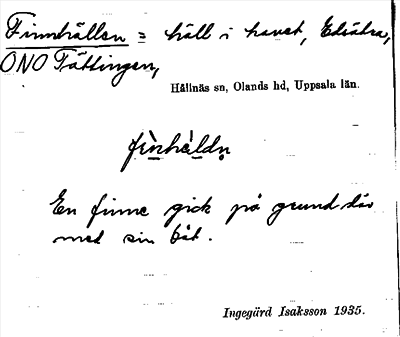 Finnhällen = häll i havet, Edsätra,
ONO Tättingen,
Hållnäs sn, Olands hd, Uppsala län.
fìnhældn̥
En finne gick på grund där
med sin båt.
Ingegärd Isaksson 1935.